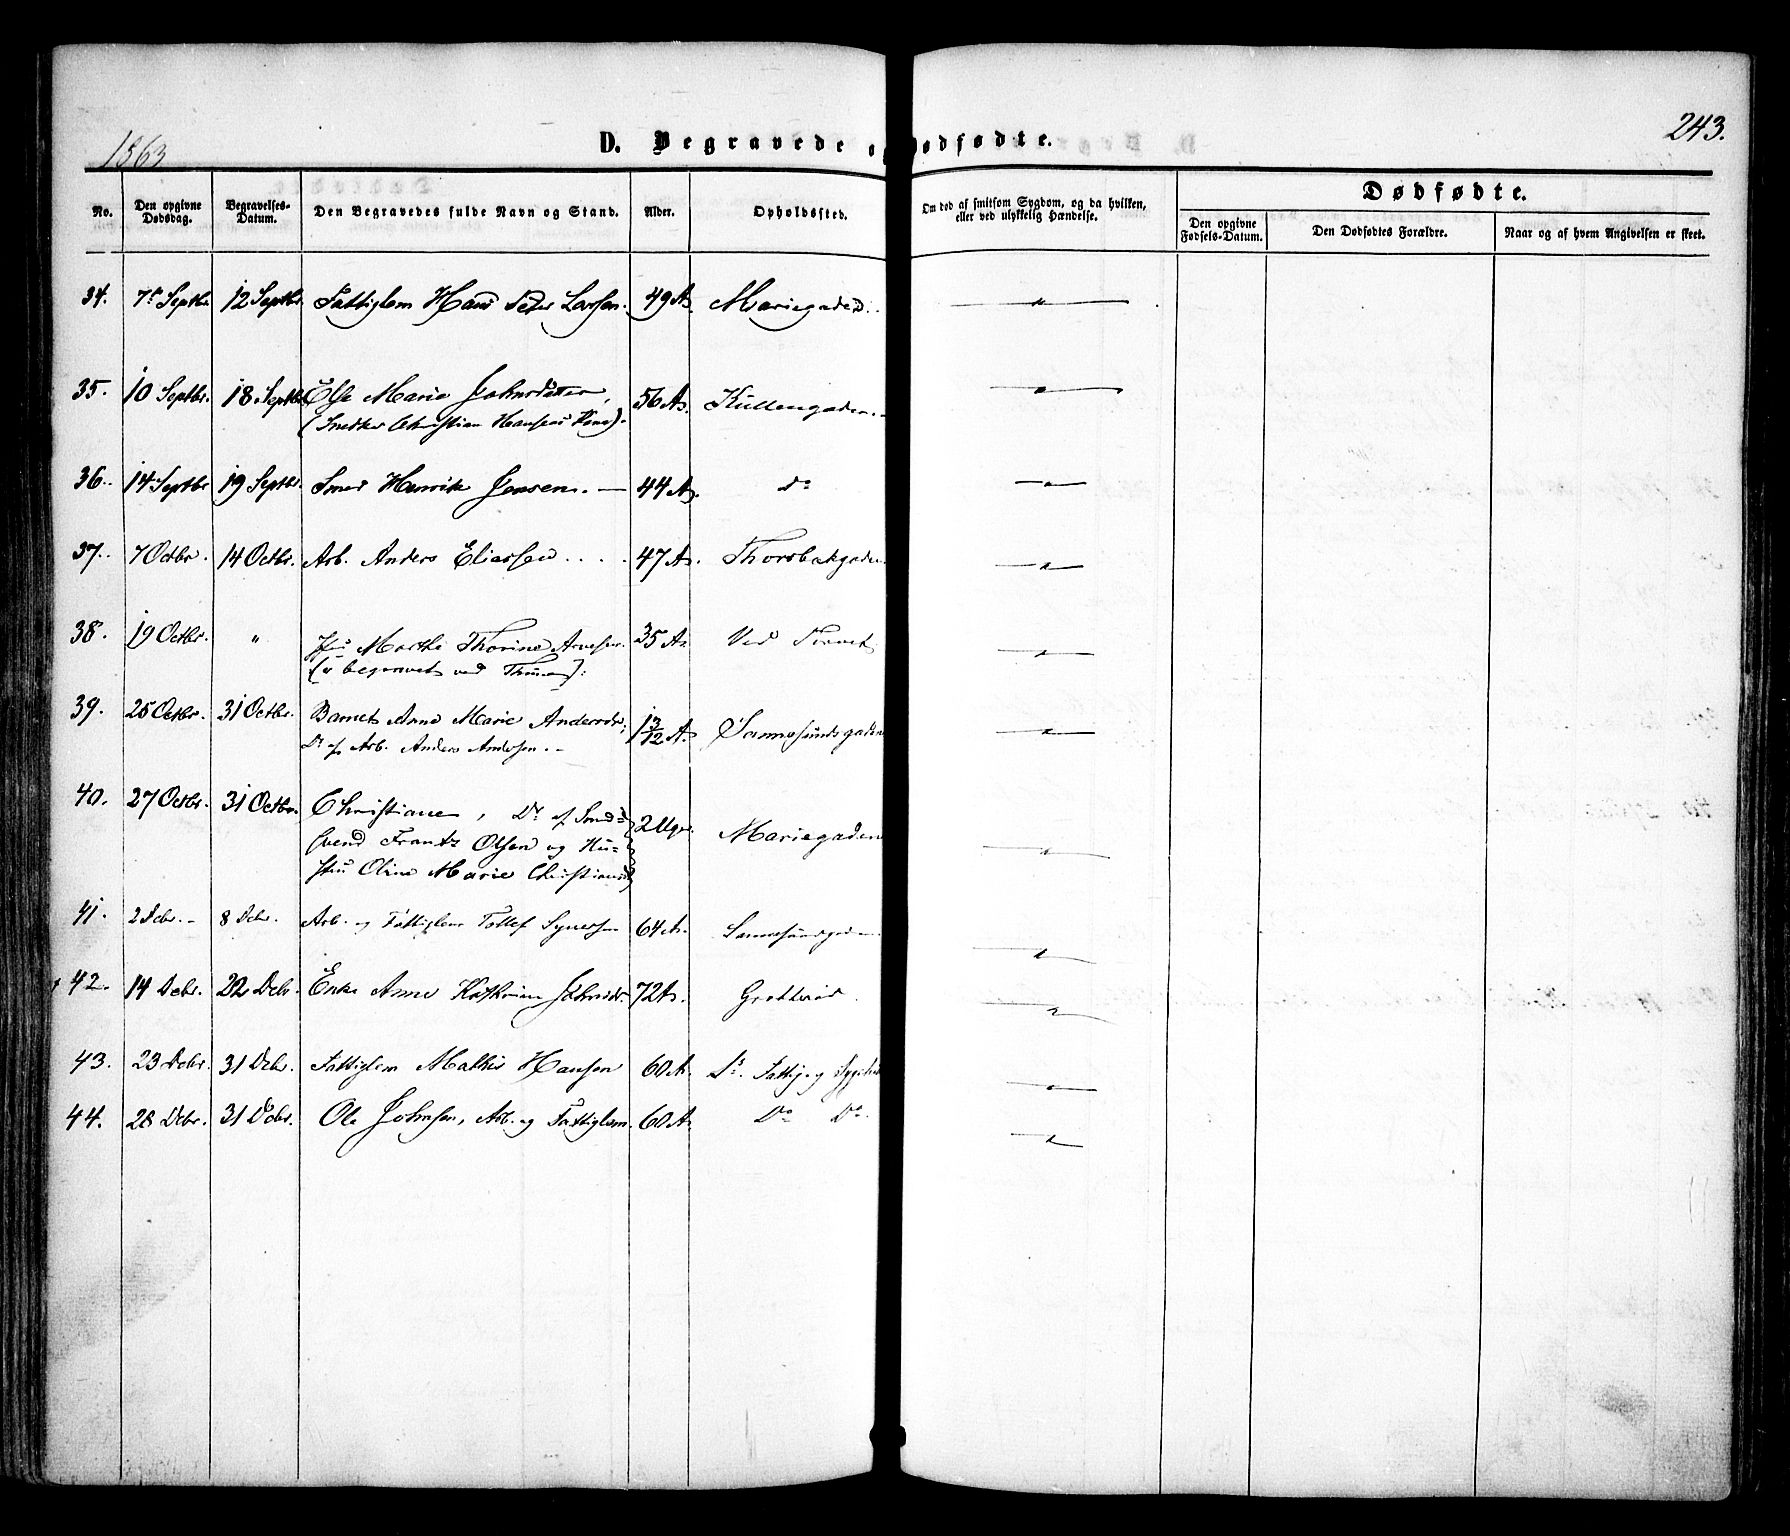 1863
243.
D. Begravede og Dødfødte.
No.
Den opgivne Dødsdag.
Begravelses-Datum.
Den Begravedes fulde Navn og Stand.
Alder.
Opholdssted.
Om død af smitsom Sygdom, og da hvilken,
eller ved ulykkelig Hændelse.
Dødfødte.
Den opgivne Fødsels-Datum.
Den Dødfødtes Forældre.
Naar og af hvem Angivelsen er skeet.
34. 7 Septbr 12 Septbr. Fattiglem Hans Peter Larsen. 49 A. Mariegaden.
35. 10 Septbr. 18 Septbr Else Marie Johnsdatter,
(Snedker Christian Hansens Kone). 56 A. Kullengaden
36. 14 Septbr 19 Septbr. Smed Henrik Jensen. 44 A. Do
37. 7 Octbr. 14 Octbr. Arb. Anders Eliassen 47 A. Thorsbakgaden
38. 19 Octbr. " Marthe Thorine Arvesen. 35 A. Ved Torvet
begravet ved
39. 25 Octbr. 31 Octbr. Barnet Anne Marie Andersdr;
Dr af Arb. Anders Andersen. 1 3/12 A. Sannesundsgaden
40. 27 Octbr. 31 Octbr. Christiane, Dr af Smed-
svend Frantz Olsen og Hu-
stru Oline Marie 2 Uger. Mariegaden
41. 2 Dcbr. 8 Dcbr. Arb. og Fattiglem Tollef 64 A. Sannesundgaden
42. 14 Dcbr. 22 Dcbr. Enke Anne 72 A.
43. 23 Dcbr. 31 Dcbr. Fattiglem Mathis Hansen 60 A.
44. 28 Dcbr. 31 Dcbr. Ole Johnsen, Arb. og Fattiglem. 60 A. Do Do